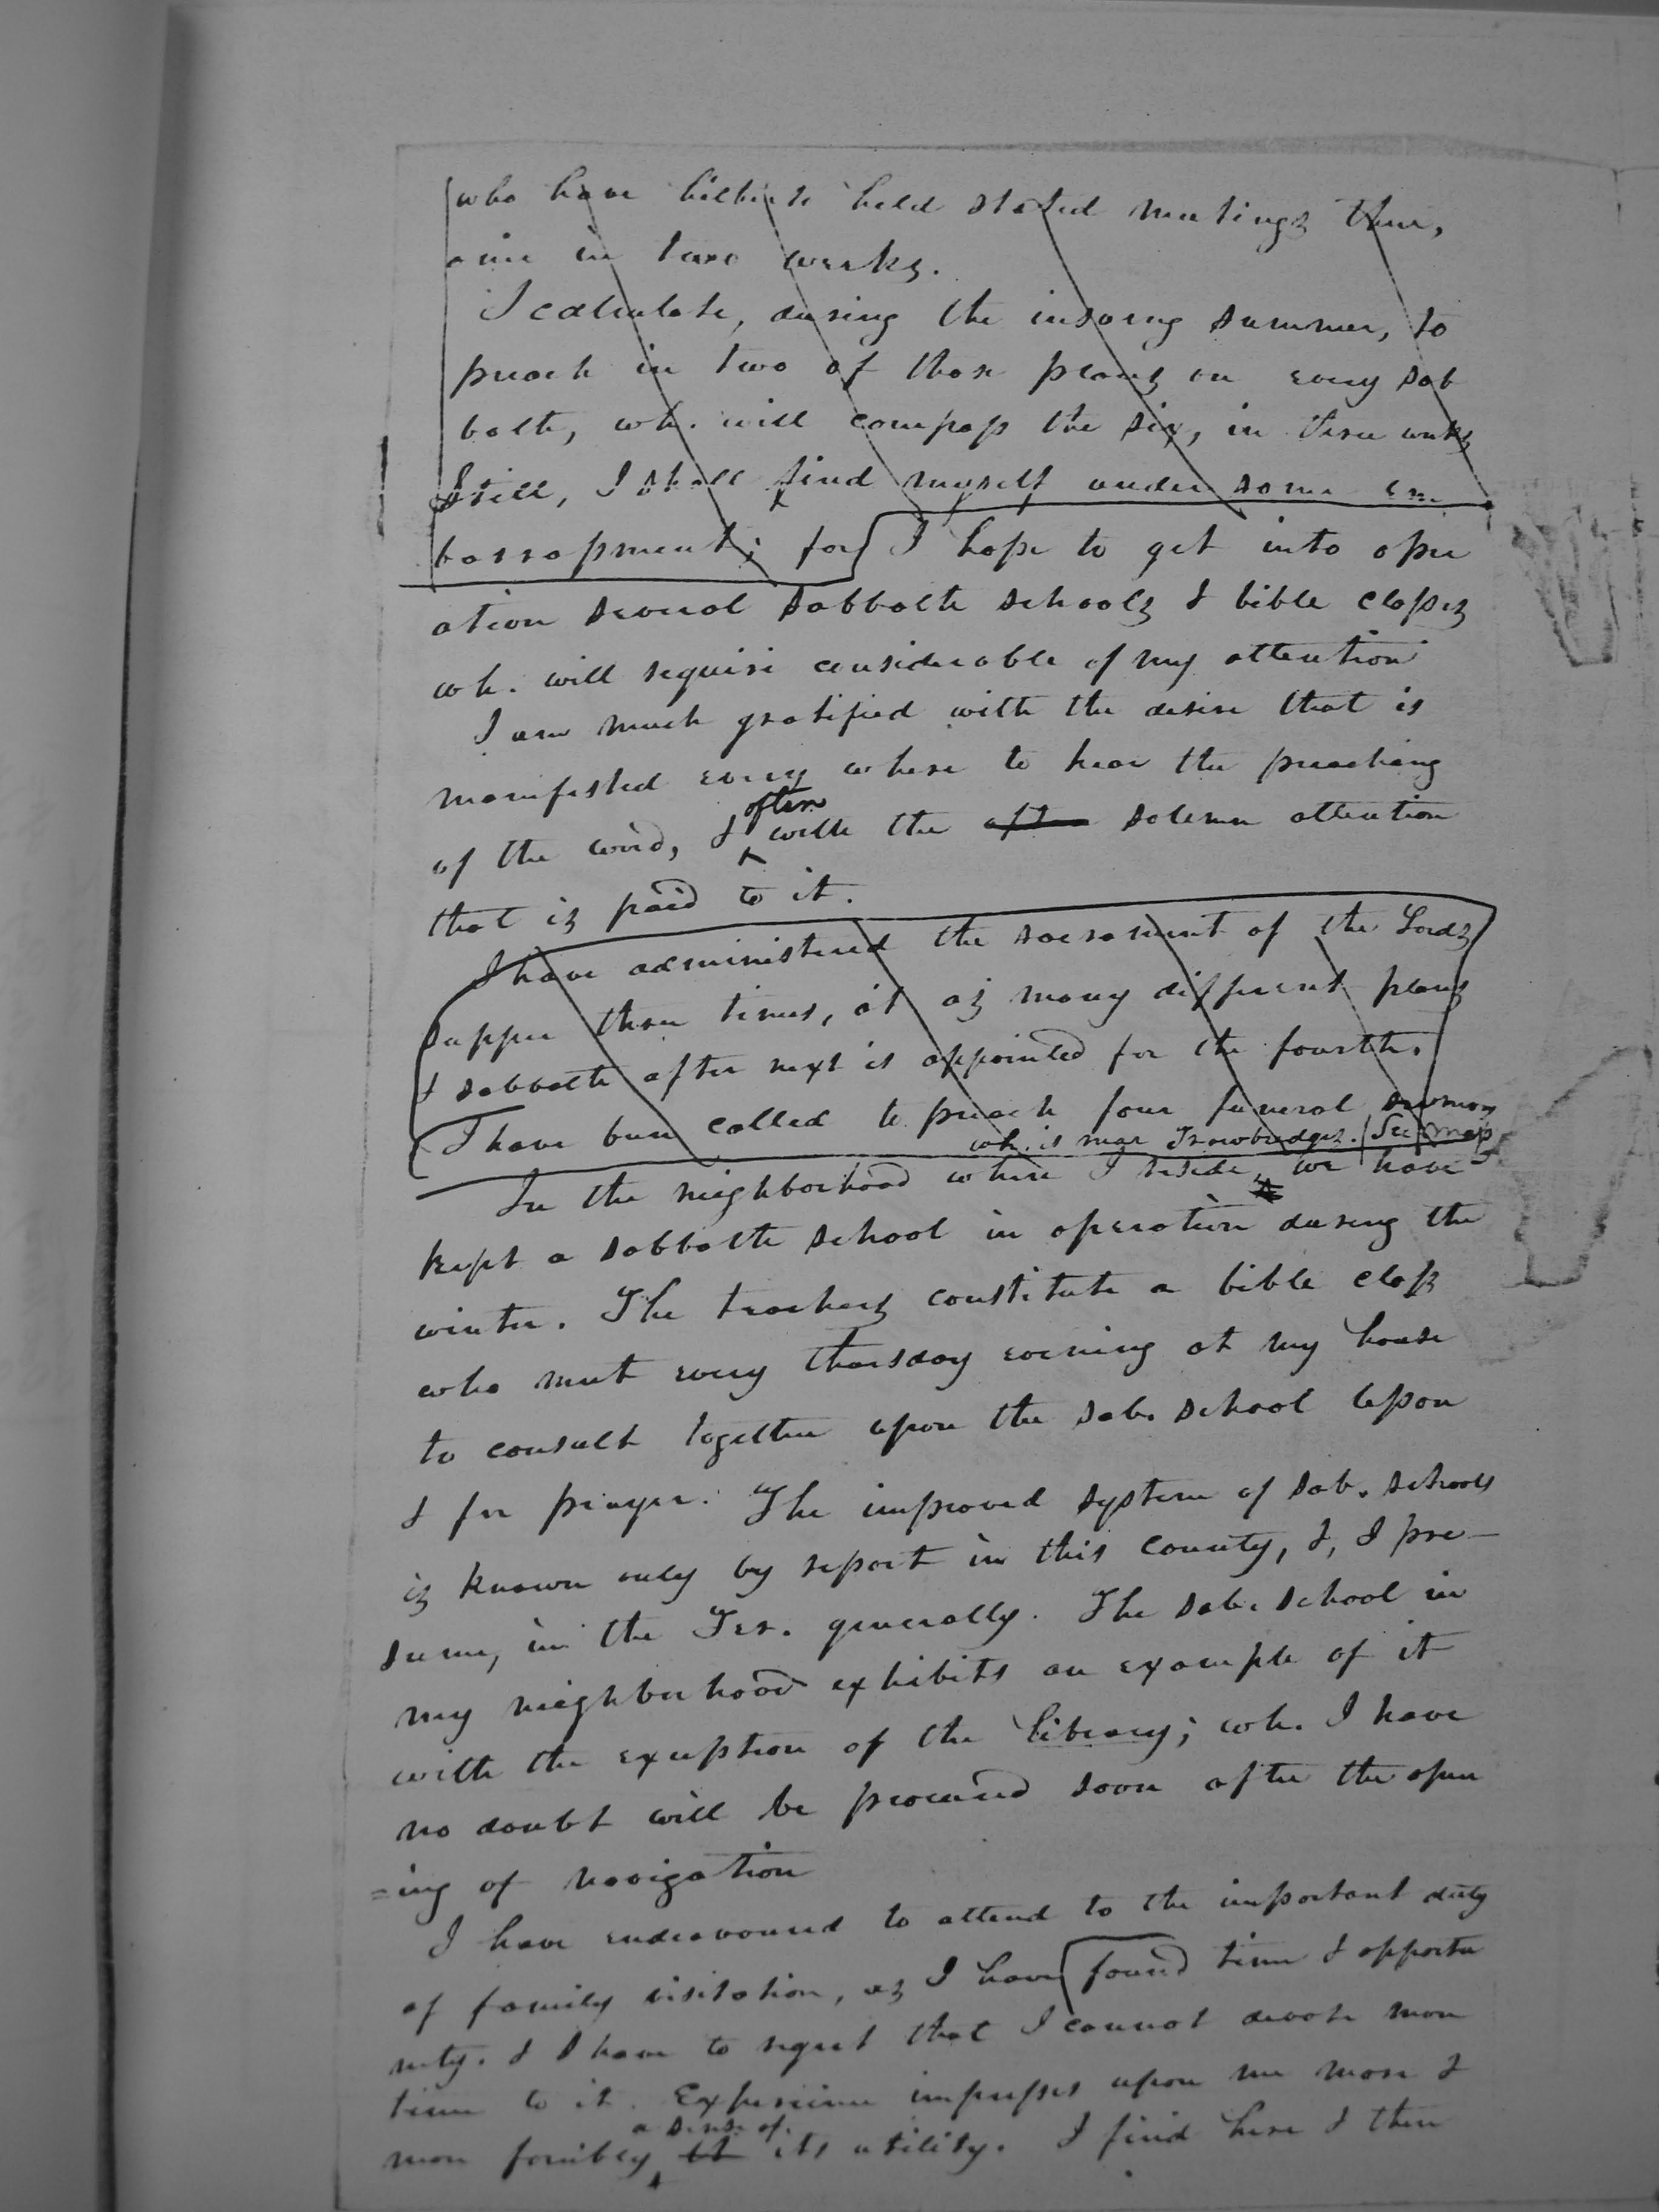 who have hitherto held stated meetings there,
once in two weeks.
I calculate, during the insuing summer, to
preach in two of those places on every sab
bath, wh. will compass the six, in three weeks
Still, I shall find myself under some em
barrassment; for I hope to get into oper
ation several sabbath schools & bible classes
wh. will require considerable of my attention
I am much gratified with the desire that is
manifested every where to hear the preaching
often
of the word, & with the often solemn attention
that is paid to it.
I have administered the sacrament of the Lords
supper three times, at as many different places
& sabbath after next is appointed for the fourth.
I have been called to preach four funeral sermons
wh. is near Trowbridges. See map
In the neighborhood where I reside, we have
kept a sabbath school in operation during the
winter. The teachers constitute a bible class
who meet every thursday evening at my house
to consult together upon the sab. school lesson
& for prayer. The improved system of sab. schools
is known only by report in this county, &, I pre-
sume, in the Ter. generally. The sab. school in
my neighborhood exhibits an example of it
with the exception of the library; wh. I have
no doubt will be procured soon after the open
=ing of navigation
I have endeavoured to attend to the important duty
of family visitation, as I have found time & opportu
nity. & I have to regret that I cannot devote more
time to it. Experience impresses upon me more &
a sense of
more forcibly its utility. I find here & there